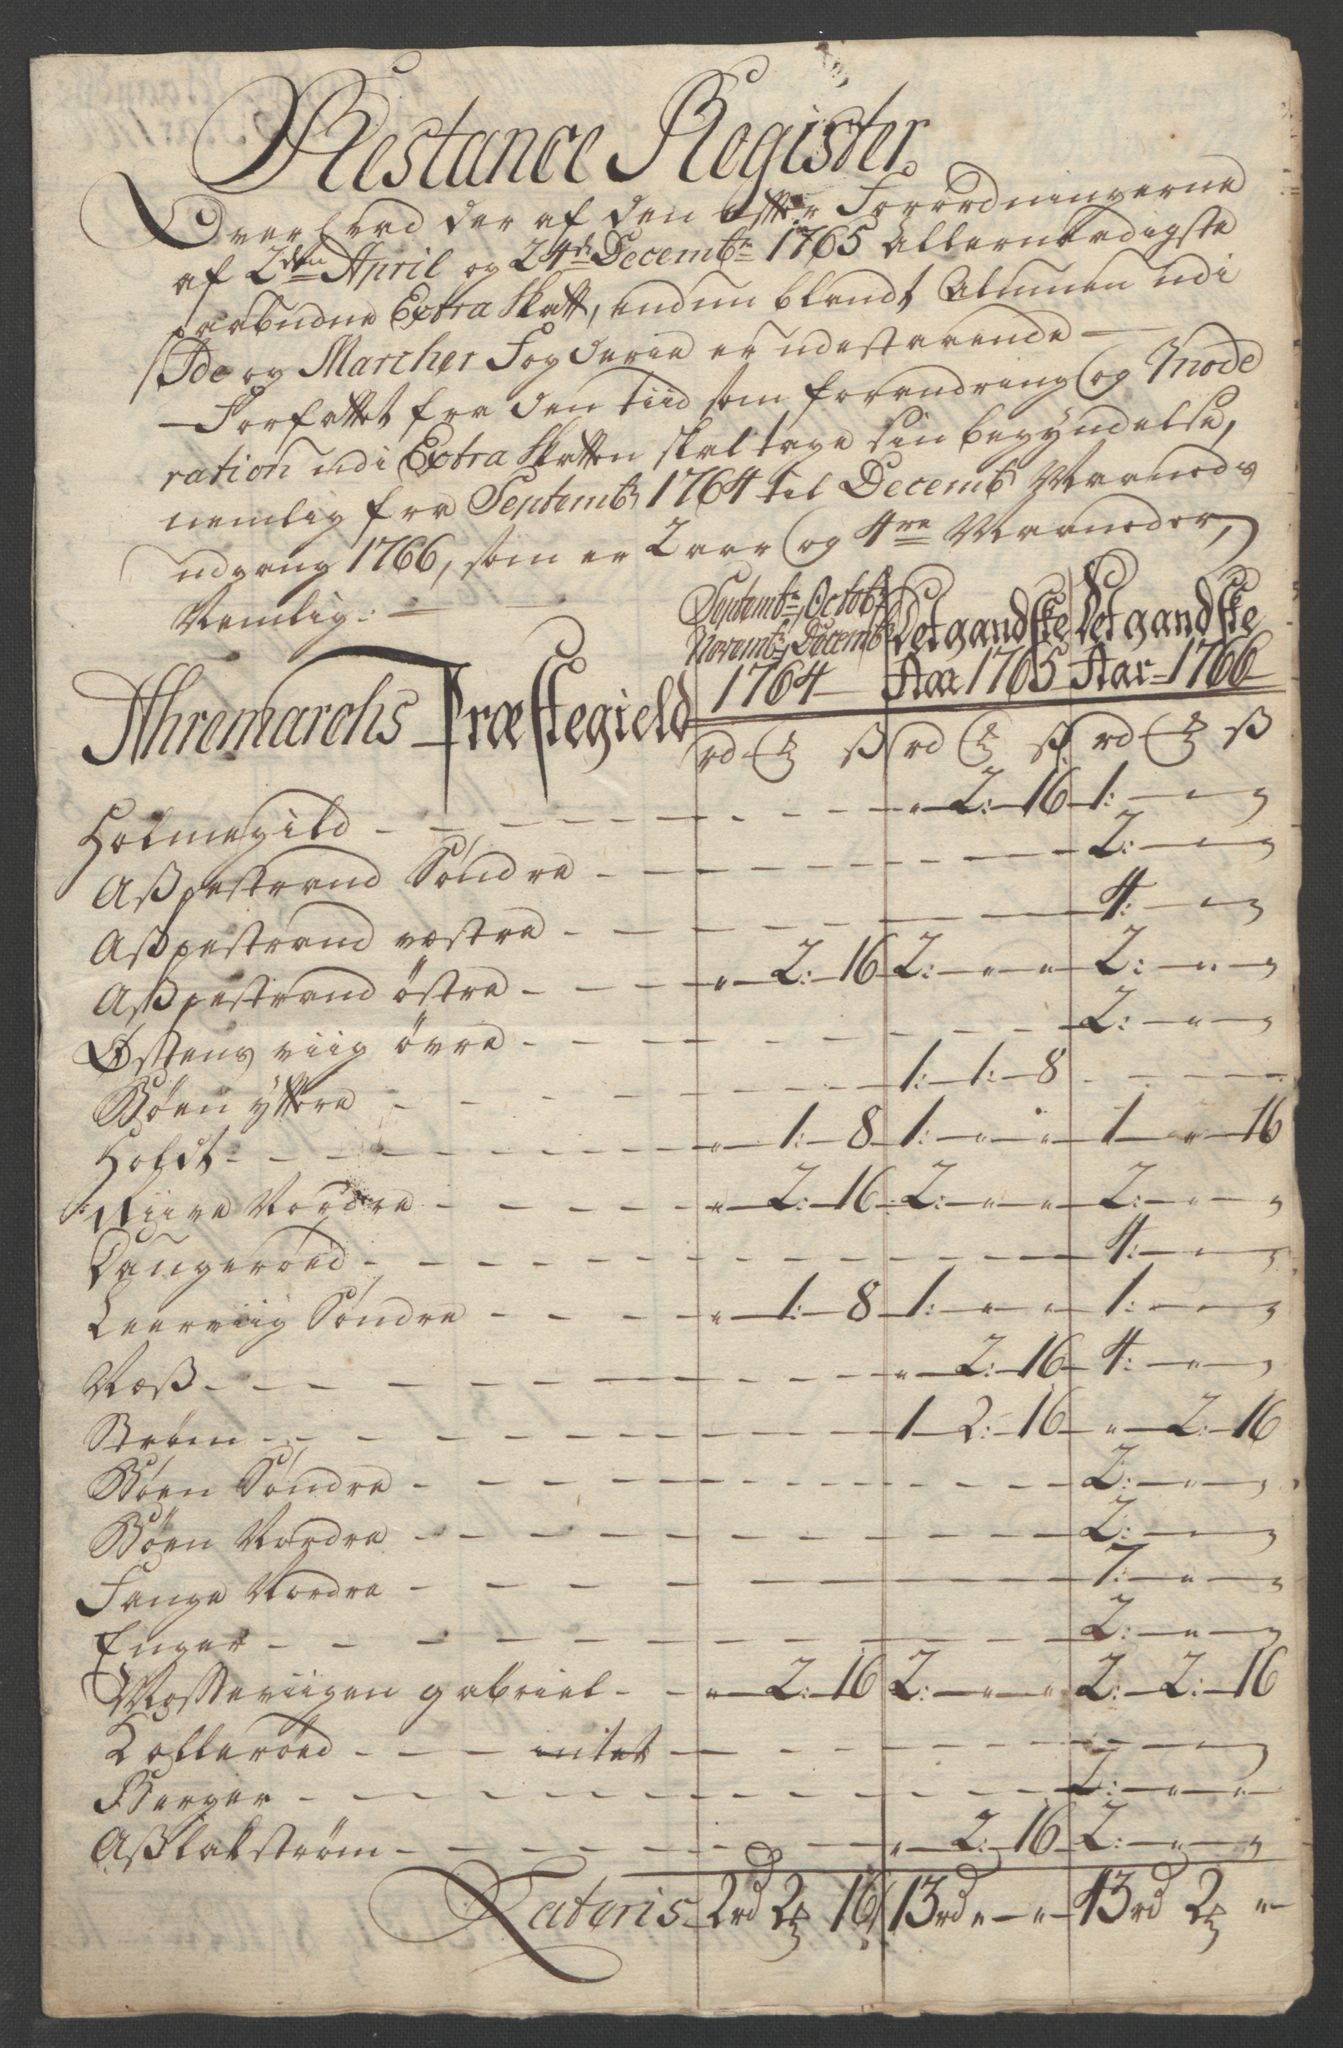 Restance Register
Over hvad der af den efter Forordningerne
af 2den April og 24de Decembr 1765 Allernaadigste
paabudne Extra Skatt, endnu blandt Almuen udi
Ide og Marcher Fogderie er udestaaende —
Forfattet fra den tiid som forandring og Mode
ration udi Extra Skatten skal tage sin begyndelse,
nemlig fra Septembr 1764 til Decembr Maaneds
udgang 1766, som er 2 aar og 4re Maaneder,
Nemlig: —
Septembr Octobr Novembr Decembr 1764 Det gandske Aar 1765 Det gandske Aar 1766
Ahremarchs Præstegield
rd ß rd ß rd ß
Holmegild - - - „ 2: 16 1: „ „
Aßpestrand Søndre - - - 2: „ „
Aßpestrand væstre - - - 4: „ „
Aßpestrand østre - - - „ 2: 16 2: „ „ 2: „ „
Østensviig øvre - - - 2: „ „
Bøen ÿttere - - - 1: 1: 8 - - -
Holdt - - - „ 1: 8 1: „ „ 1 „ 16
Riive Nordre - - - „ 2: 16 2: „ „ 2: „ „
Tangerøed - - - 4: „ „
Leerviig Søndre - - - „ 1: 8 1: „ „ 1: „ „
Næß - - - „ 2: 16 4: „ „
Strøm - - - 1 2: 16 „ 2: 16
Bøen Søndre - - - 2: „ „
Bøen Nordre - - - 2: „ „
Fange Nordre - - - 7: „ „
Enger - - - 2: „ „
Mosseviigen gabriel - - „ 2: 16 2: „ „ 2: 2: 16
Kollerøed - - - intet - - -
Berger - - - 2: „ „
Aßlakstrøm - - - „ 2: 16 2: „ „
Lateris 2rd 2 16 13rd „ „ 43rd 2 „